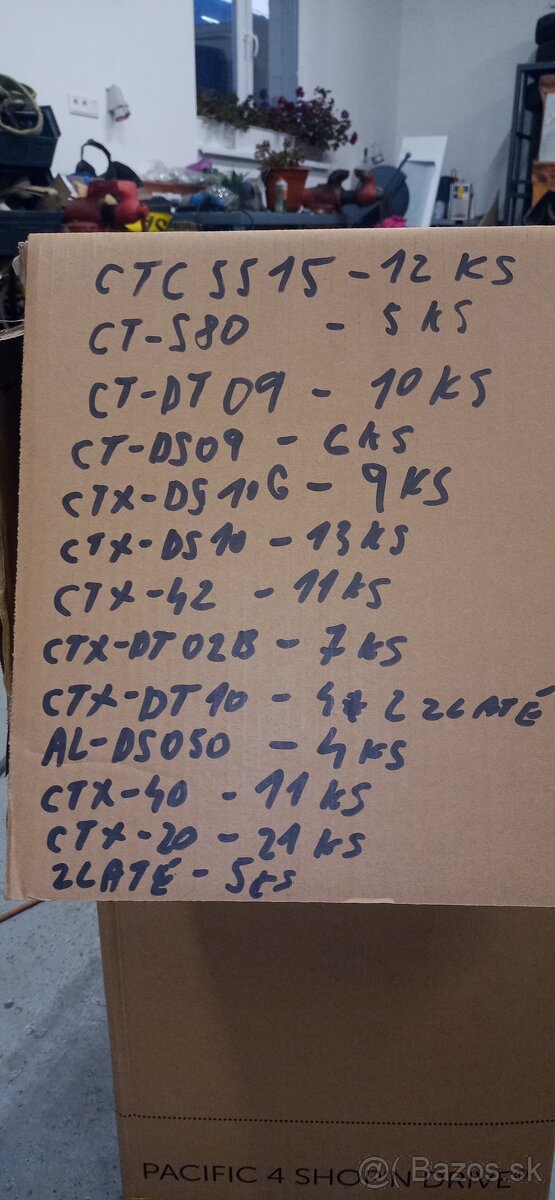 CTC SS 15 - 12 KS
CT-S80 - 5 KS
CT-DT 09 - 10 KS
CT-DS09 - 6 KS
CTX-DS10G - 9 KS
CTX-DS10 - 13 KS
CTX-42 - 11 KS
CTX-DT02B - 7 KS
CTX-DT10 - 4 + 2 ZLATÉ
AL-DS050 - 4 KS
CTX-40 - 11 KS
CTX-20 - 21 KS
ZLATÉ - 5 KS
PACIFIC 4 SHOP'N DRIVE®
Bazos.sk